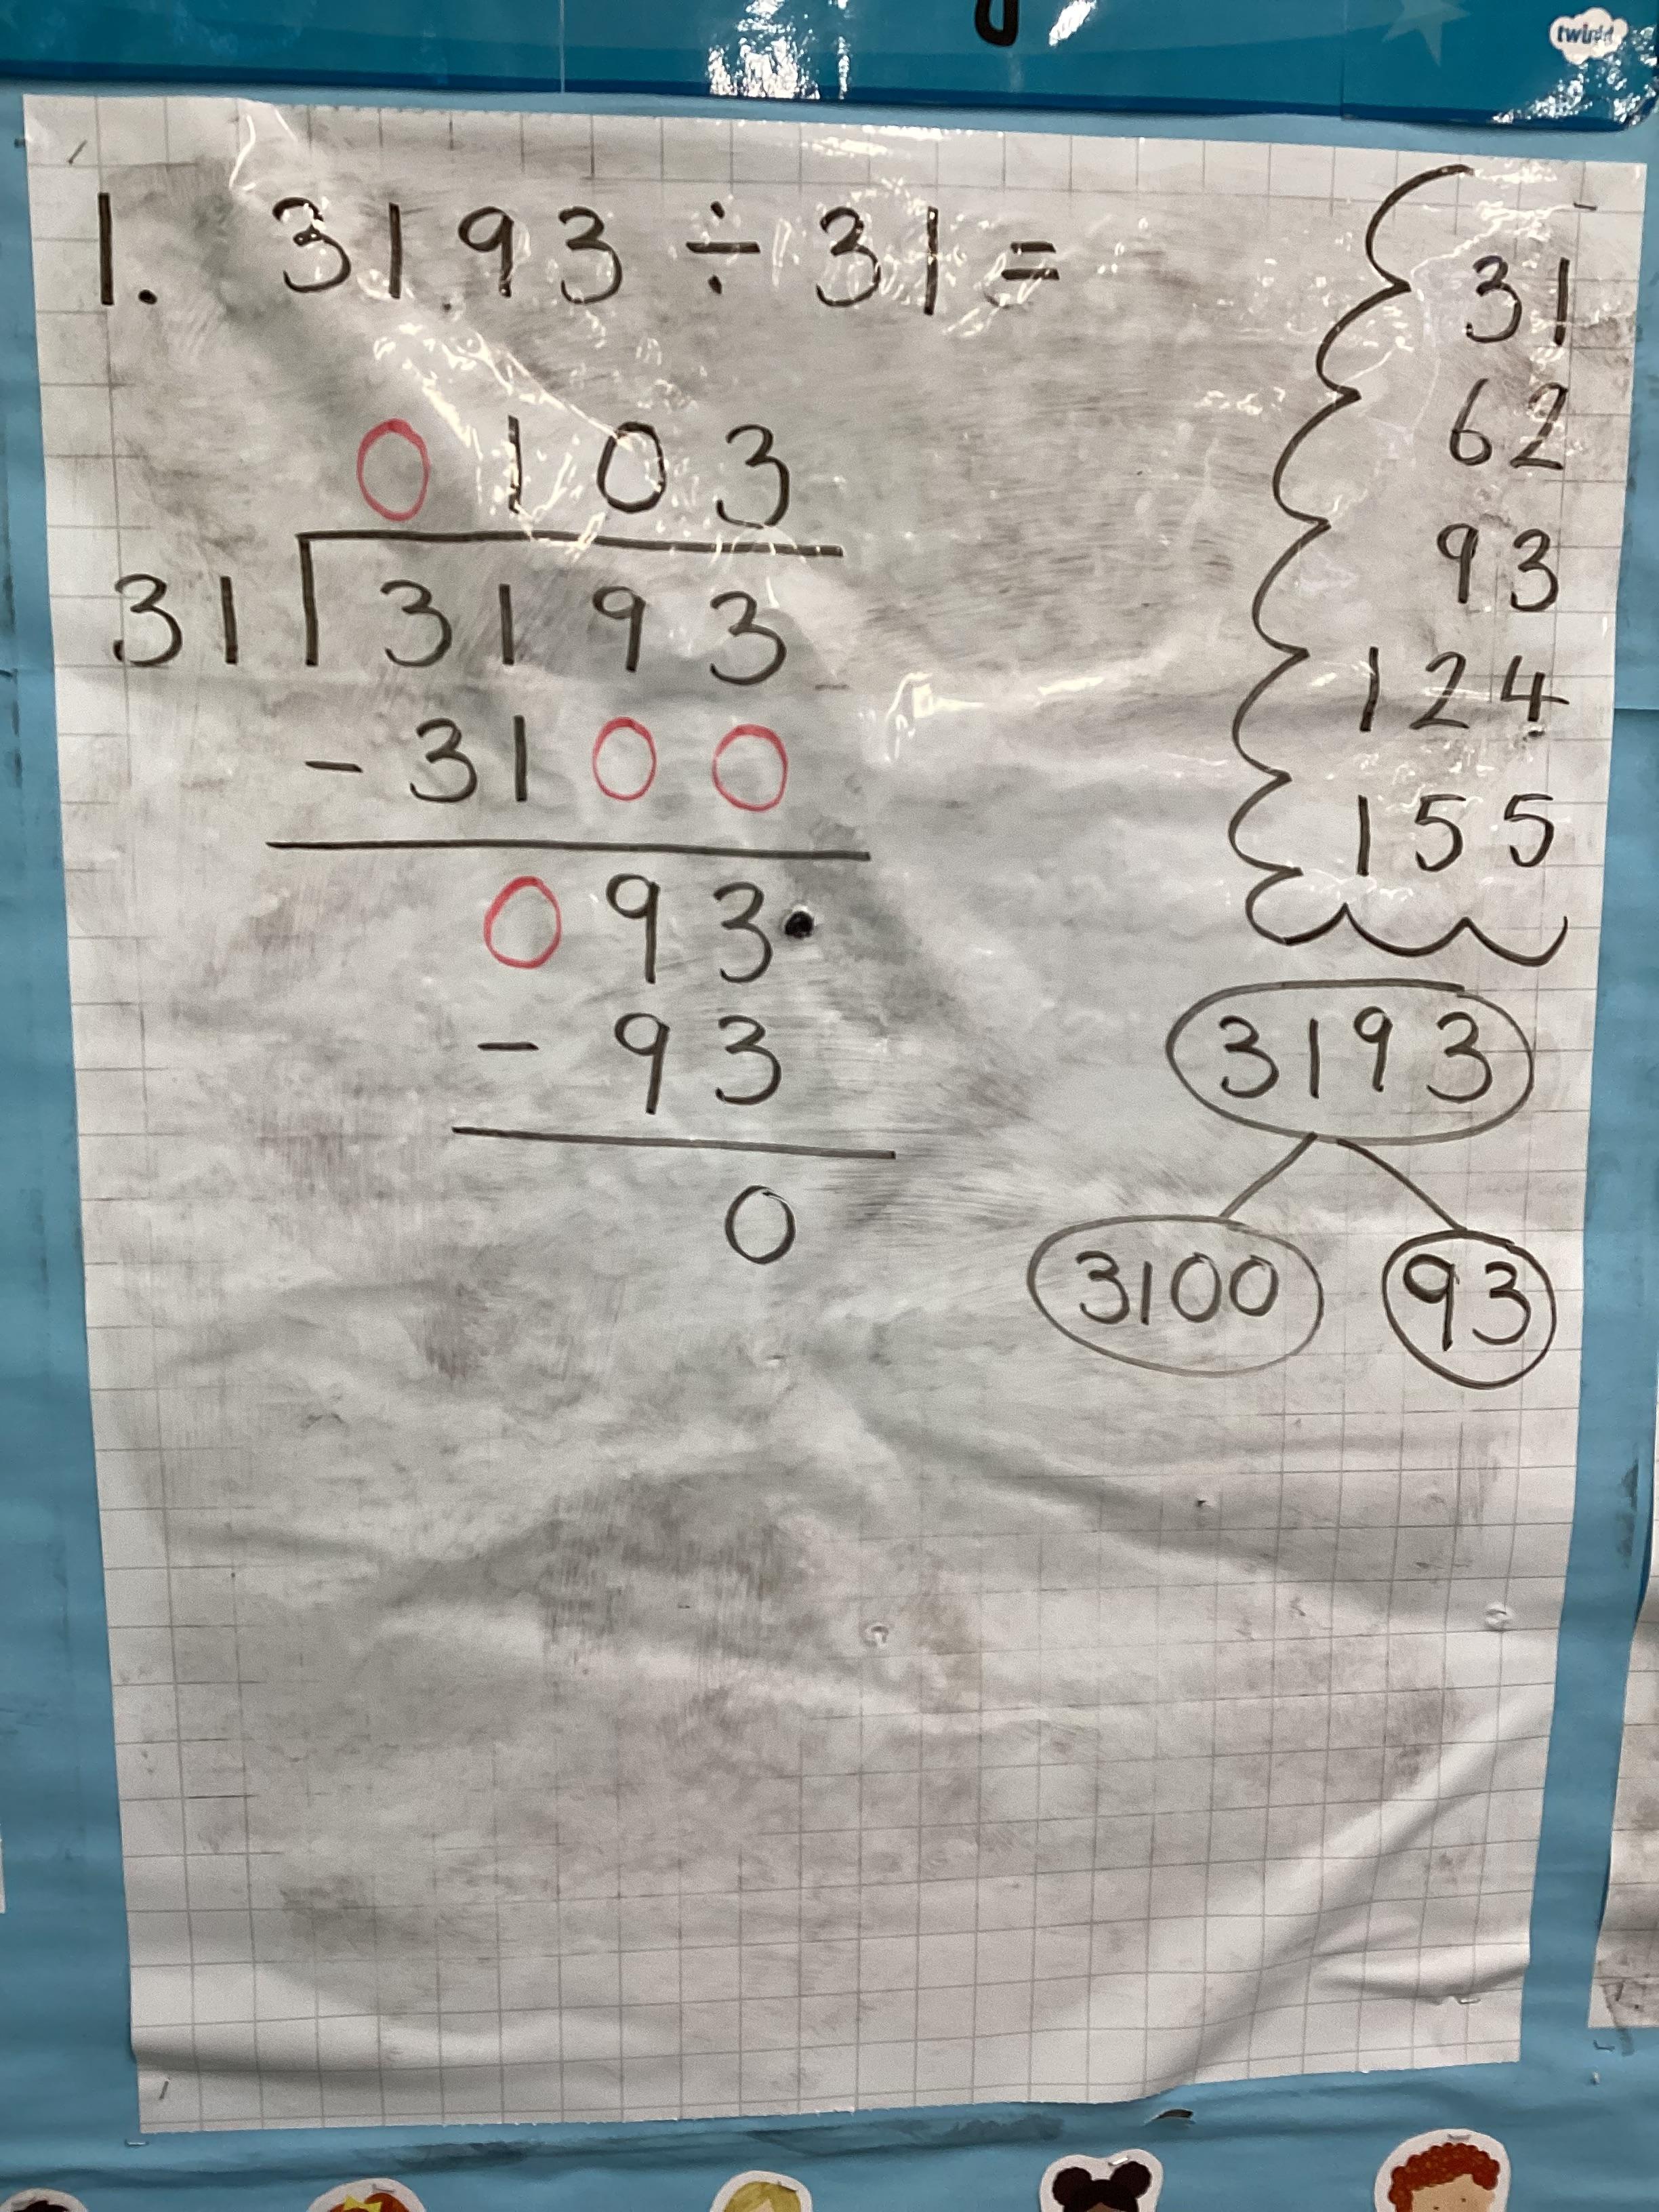 twinkl
1. 3193 ÷ 31 =
0103
31 3193
- 3100
093
- 93
0
31
62
93
124
155
3193
3100 93